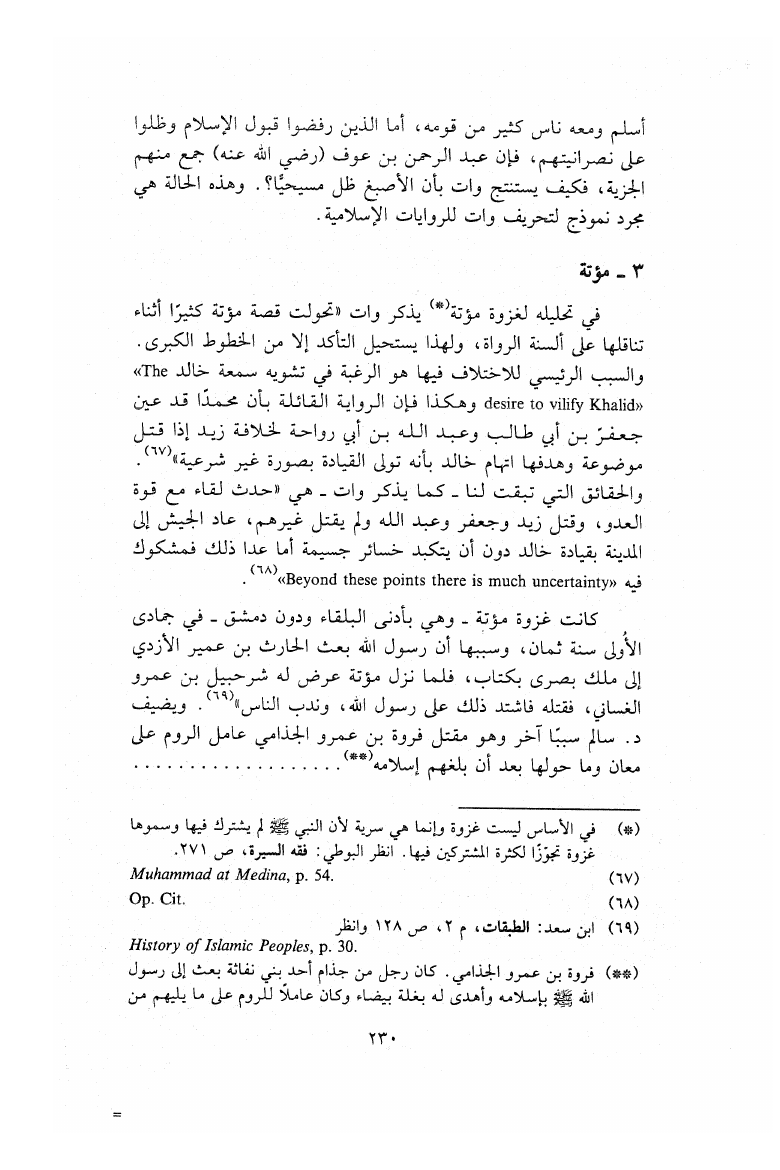 أسلم ومعه ناس كثير من قومه، أما الذين رفضوا قبول الإسلام وظلوا
على نصرانيتهم، فإن عبد الرحمن بن عوف (رضي الله عنه) جمع منهم
الجزية، فكيف يستنتج وات بأن الأصبغ ظل مسيحيًّا؟. وهذه الحالة هي
مجرد نموذج لتحريف وات للروايات الإسلامية.
٣ ـ مؤتة
في تحليله لغزوة مؤتة(*) يذكر وات «تحولت قصة مؤتة كثيرًا أثناء
تناقلها على ألسنة الرواة، ولهذا يستحيل التأكد إلا من الخطوط الكبرى.
والسبب الرئيسي للاختلاف فيها هو الرغبة في تشويه سمعة خالد «The
desire to vilify Khalid» وهكذا فإن الرواية القائلة بأن محمدًا قد عين
جعفرّ بن أبي طالب وعبد الله بن أبي رواحة لخلافة زيد إذا قتل
موضوعة وهدفها اتهام خالد بأنه تولى القيادة بصورة غير شرعية»(٦٧).
والحقائق التي تبقت لنا ـ كما يذكر وات ـ هي «حدث لقاء مع قوة
العدو، وقتل زيد وجعفر وعبد الله ولم يقتل غيرهم، عاد الجيش إلى
المدينة بقيادة خالد دون أن يتكبد خسائر جسيمة أما عدا ذلك فمشكوك
فيه «Beyond these points there is much uncertainty»(٦٨).
كانت غزوة مؤتة ـ وهي بأدنى البلقاء ودون دمشق ـ في جمادى
الأُولى سنة ثمان، وسببها أن رسول الله بعث الحارث بن عمير الأزدي
إلى ملك بصرى بكتاب، فلما نزل مؤتة عرض له شرحبيل بن عمرو
الغساني، فقتله فاشتد ذلك على رسول الله، وندب الناس»(٦٩). ويضيف
د. سالم سببًا آخر وهو مقتل فروة بن عمرو الجذامي عامل الروم على
معان وما حولها بعد أن بلغهم إسلامه(**). . . . . . . . . . . . . . . . . . .
(*) في الأساس ليست غزوة وإنما هي سرية لأن النبي ﷺ لم يشترك فيها وسموها
غزوة تجوّزًا لكثرة المشتركين فيها. انظر البوطي: فقه السيرة، ص ٢٧١.
(٦٧) Muhammad at Medina, p. 54.
(٦٨) Op. Cit.
(٦٩) ابن سعد: الطبقات، م ٢، ص ١٢٨ وانظر
History of Islamic Peoples, p. 30.
(**) فروة بن عمرو الجذامي. كان رجل من جذام أحد بني نفاثة بعث إلى رسول
الله ﷺ بإسلامه وأهدى له بغلة بيضاء وكان عاملًا للروم على ما يليهم من
٢٣٠
=